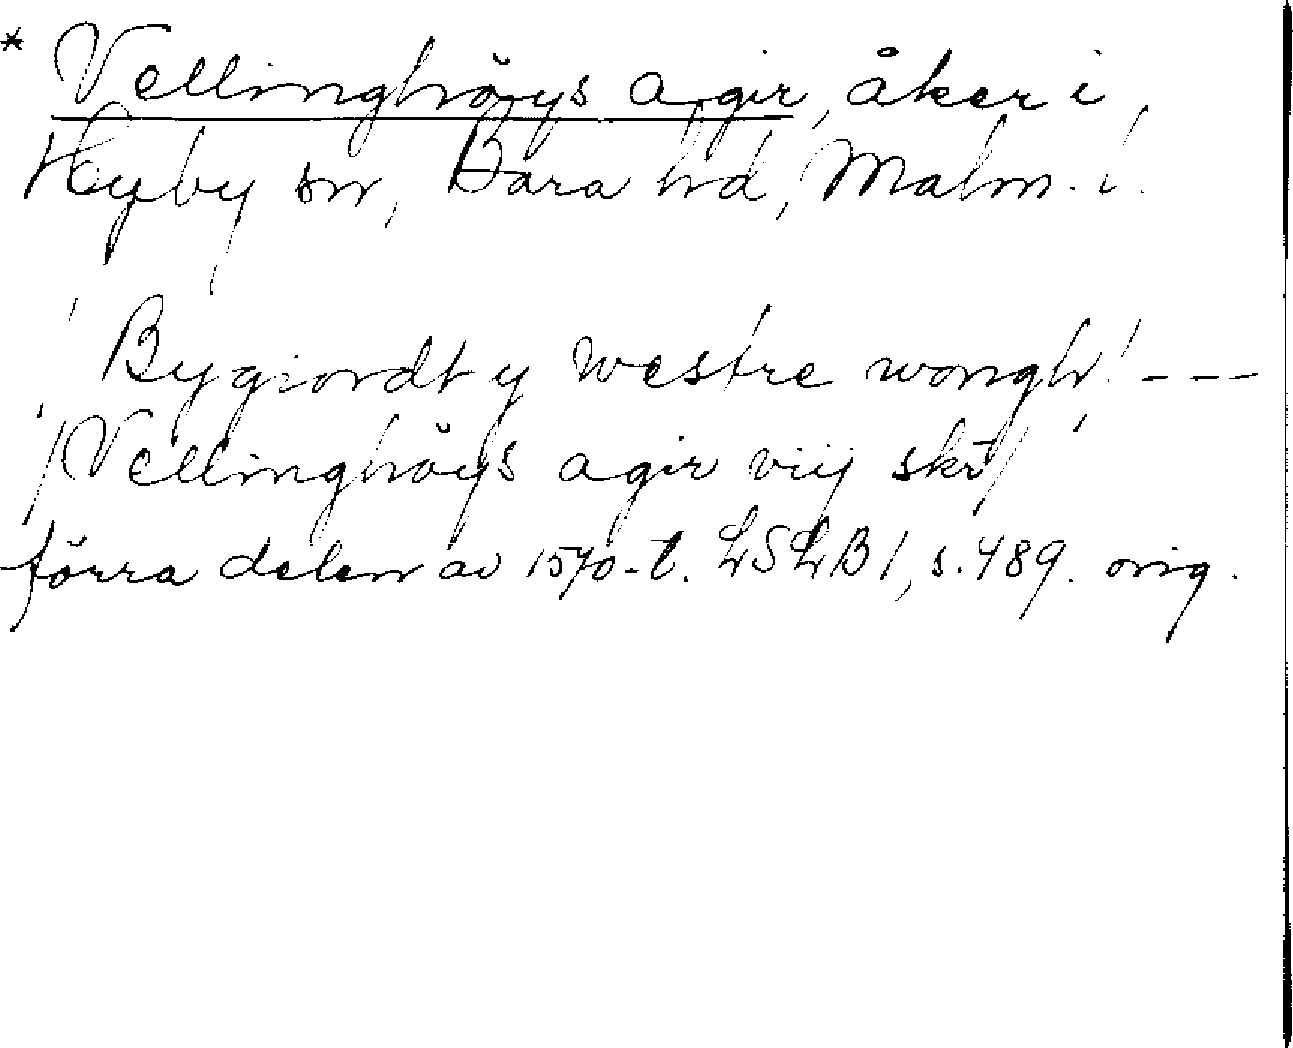 * Vellinghöys agir, åker i
Hyby sn, Bara hd, Malm. l.
Bygiordt y westre wongh! ---
Vellinghöys agir viij skr
förra delen av 1570-t. LSLB 1, s. 489. orig.